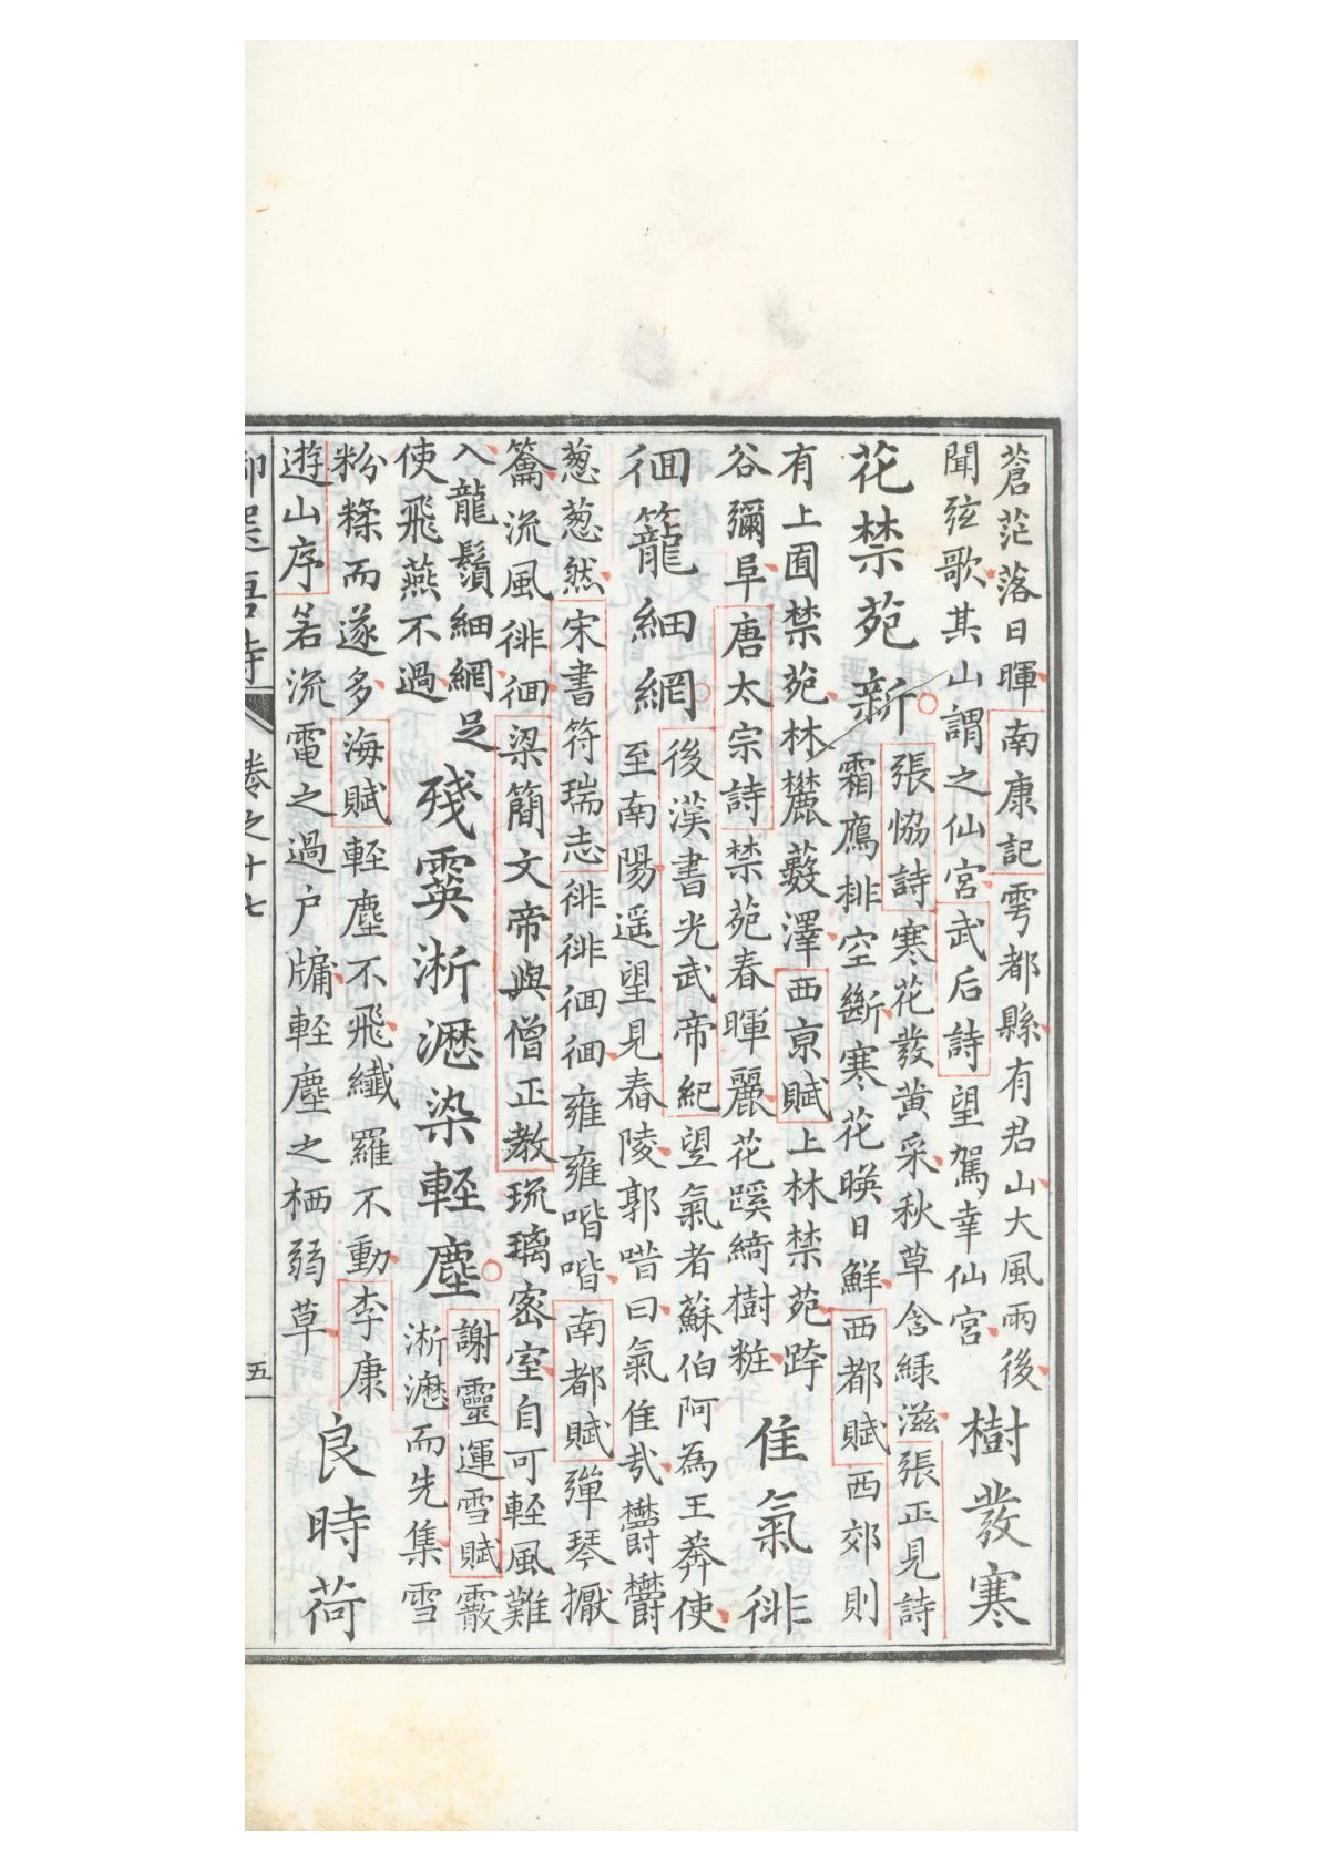 蒼茫落日暉南康記雩都縣有君山大風雨後
聞弦歌其山謂之仙宮武后詩望駕幸仙宮
樹發寒
花禁苑新
張協詩寒花發黃采秋草含綠滋張正見詩
霜鷹排空斷寒花暎日鮮西都賦西郊則
有上囿禁苑林麓藪澤西京賦上林禁苑跨
谷彌阜唐太宗詩禁苑春暉麗花蹊綺樹粧
佳氣徘
徊籠細網
後漢書光武帝紀望氣者蘇伯阿為王莽使
至南陽遥望見舂陵郭唶曰氣佳哉鬱鬱
葱葱然宋書符瑞志徘徘徊徊雍雍喈喈南都賦彈琴擫
籥流風徘徊梁簡文帝與僧正教琉璃密室自可輕風難
入龍鬚細網足
使飛燕不過
殘霙淅瀝染輕塵
謝靈運雪賦霰
淅瀝而先集雪
粉糅而遂多海賦輕塵不飛纖羅不動李康
遊山序若流電之過户牖輕塵之栖弱草
良時荷
御選唐詩
卷之十七
五